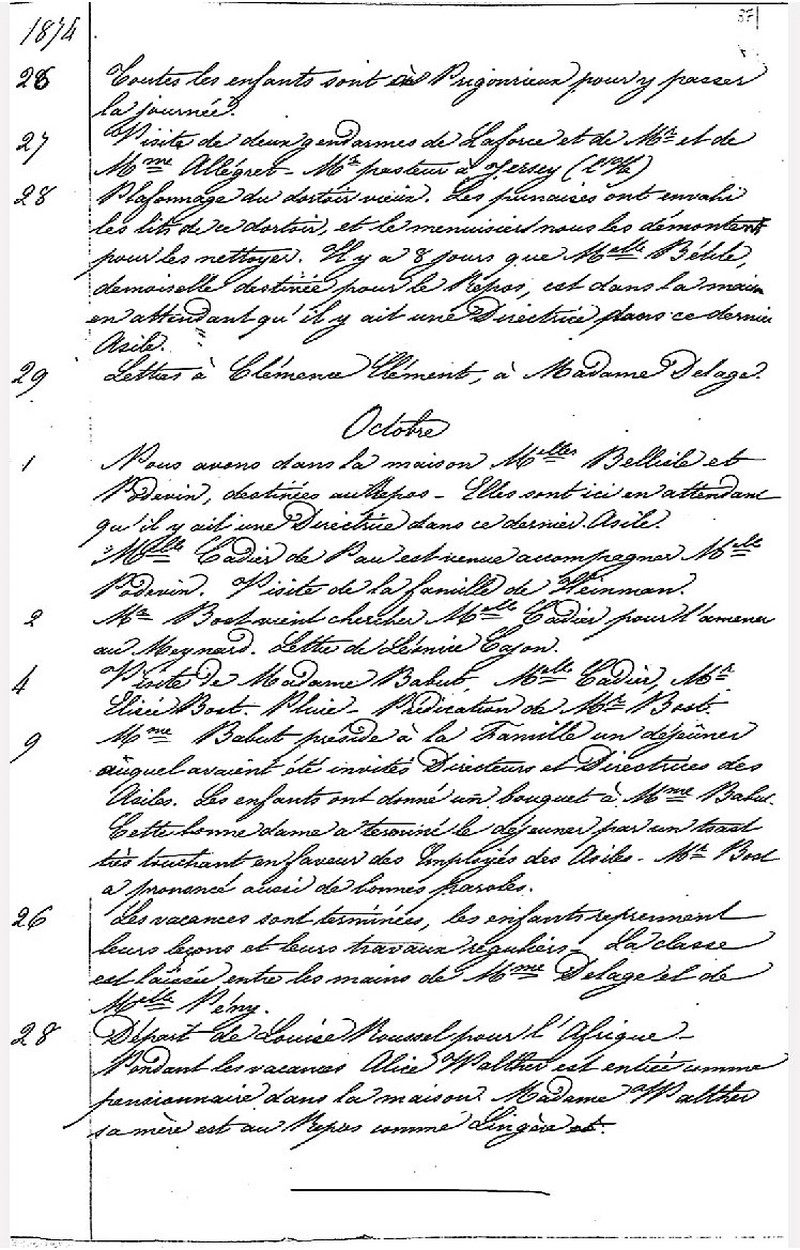 1874
37
26 Toutes les enfants sont à Prigonrieux pour y passer
la journée.
27 Visite de deux gendarmes de Laforce et de Mr et de
Mme Allégret - Mr pasteur à Jersey
28 Plafonnage du dortoir vieux. Les punaises ont envahi
les lits de ce dortoir, et le menuisier nous les démonte
pour les nettoyer. Il y a 8 jours que Melle
demoiselle destinée pour le Repos, est dans la maison
en attendant qu'il y ait une Directrice dans ce dernier
Asile.
29 Lettres à Clémence Clément, à Madame Delage.
Octobre
1 Nous avons dans la maison Melles Bellicle et
Poderin, destinées au Repos - Elles sont ici en attendant
qu'il y ait une Directrice dans ce dernier Asile.
Melle Cadier de Pau est venue accompagner Melle
Poderin. Visite de la famille de Heinman.
2 Mr Bost vient chercher Melle Cadier pour l'amener
au Meynard. Lettre de Léonice Cajon.
4 Visite de Madame Babut, Melle Cadier, Mr
Elisée Bost. Pluie - Prédication de Mr Bost.
9 Mme Babut préside à la Famille un déjeûner
auquel avaient été invités Directeurs et Directrices des
Asiles. Les enfants ont donné un bouquet à Mme Babut.
Cette bonne dame a terminé le déjeuner par un toast
très touchant en faveur des Employés des Asiles - Mr Bost
a prononcé aussi de bonnes paroles.
26 Les vacances sont terminées, les enfants reprennent
leurs leçons et leurs travaux réguliers - La classe
est laissée entre les mains de Mme Delage et de
Melle Pény.
28 Départ de Louise Roussel pour l'Afrique -
Pendant les vacances Alice Walther est entrée comme
pensionnaire dans la maison. Madame Walther
sa mère est au Repos comme Lingère et.